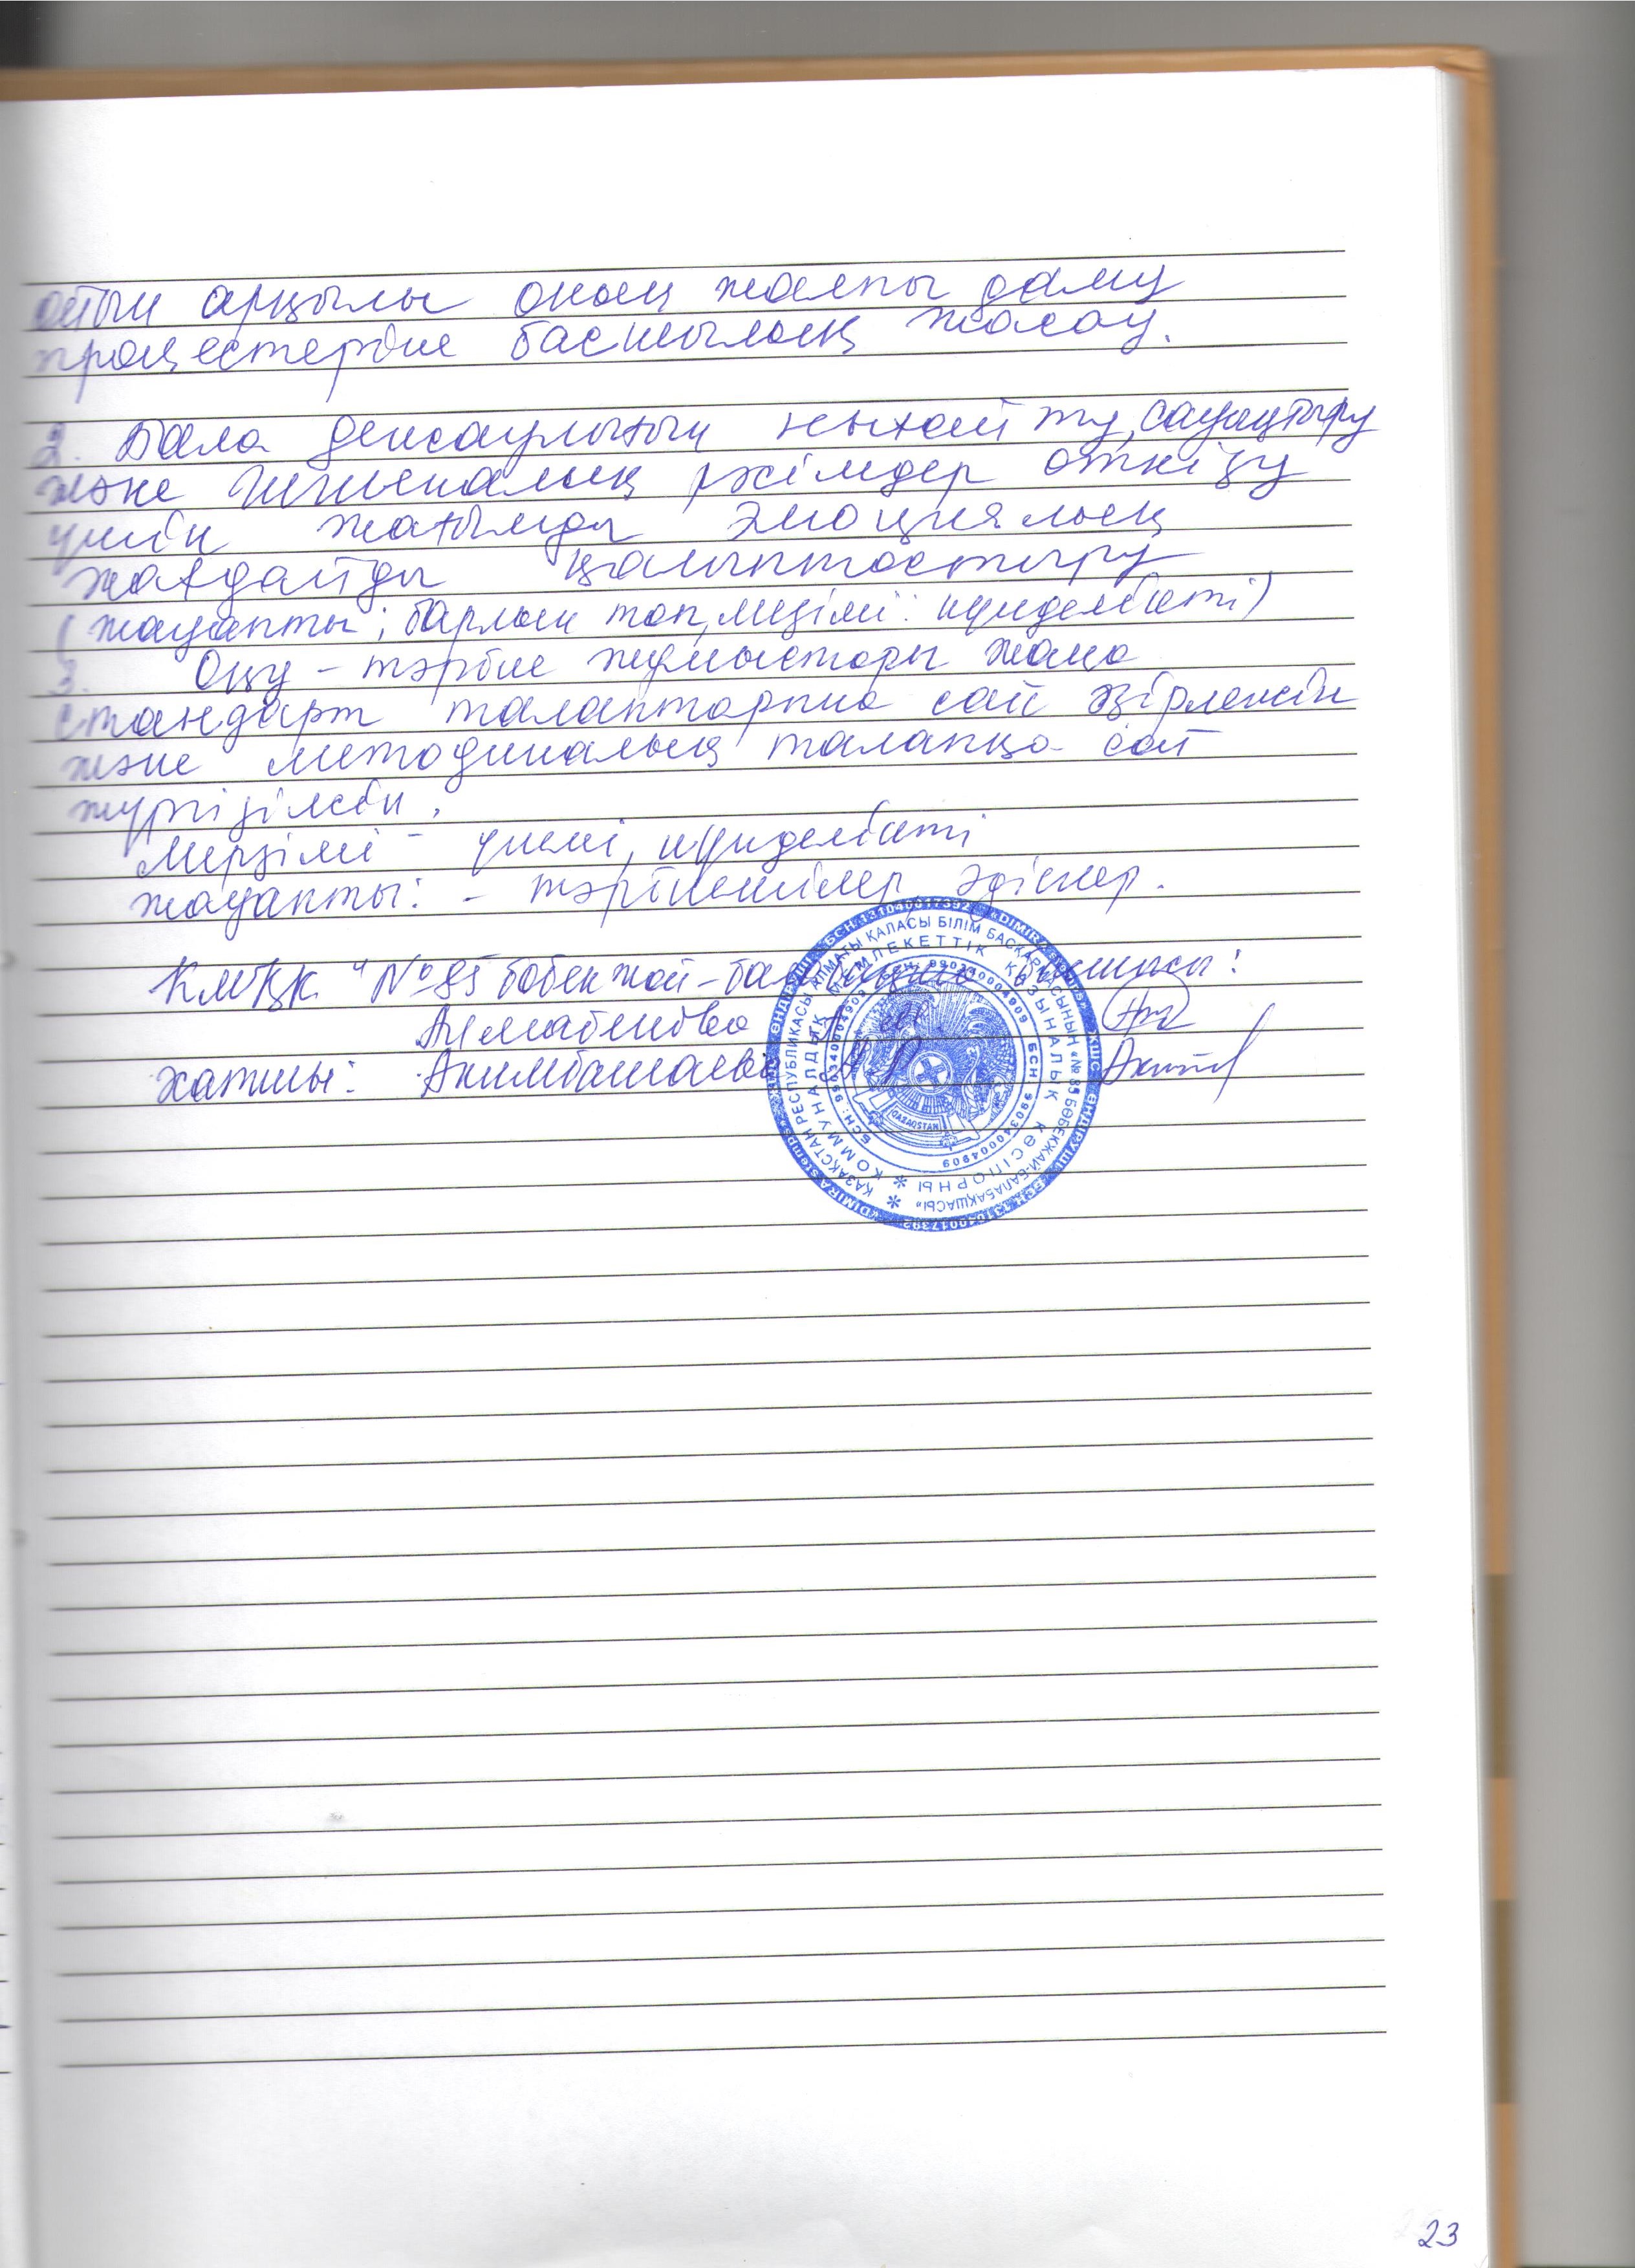 арқылы оның жалпы даму
процестеріне басшылық жасау.
2. Бала денсаулығын нығайту, сауықтыру
және гигиеналық режімдер өткізу
үшін жағымды эмоциялық
жағдайды қалыптастыру
(жауапты; барлық топ, мезімі: күнделікті)
3. Оқу - тәрбие жұмыстары жаңа
стандарт талаптарына сай әзірленсін
және методикалық талапқа сай
жүргізілсін.
Мерзімі - үнемі, күнделікті
жауапты: - тәрбиешілер, әдіскер.
КМҚК "№ 85 бөбекжай-бал
хатшы:
ҚАЗАҚСТАН РЕСПУБЛИКАСЫ АЛМАТЫ ҚАЛАСЫ БІЛІМ БАСҚАРМАСЫНЫҢ «№ 85 БӨБЕКЖАЙ-БАЛАБАҚШАСЫ»
КОММУНАЛДЫҚ МЕМЛЕКЕТТІК ҚАЗЫНАЛЫҚ КӘСІПОРНЫ
БСН: 990340004909
QAZAQSTAN
23